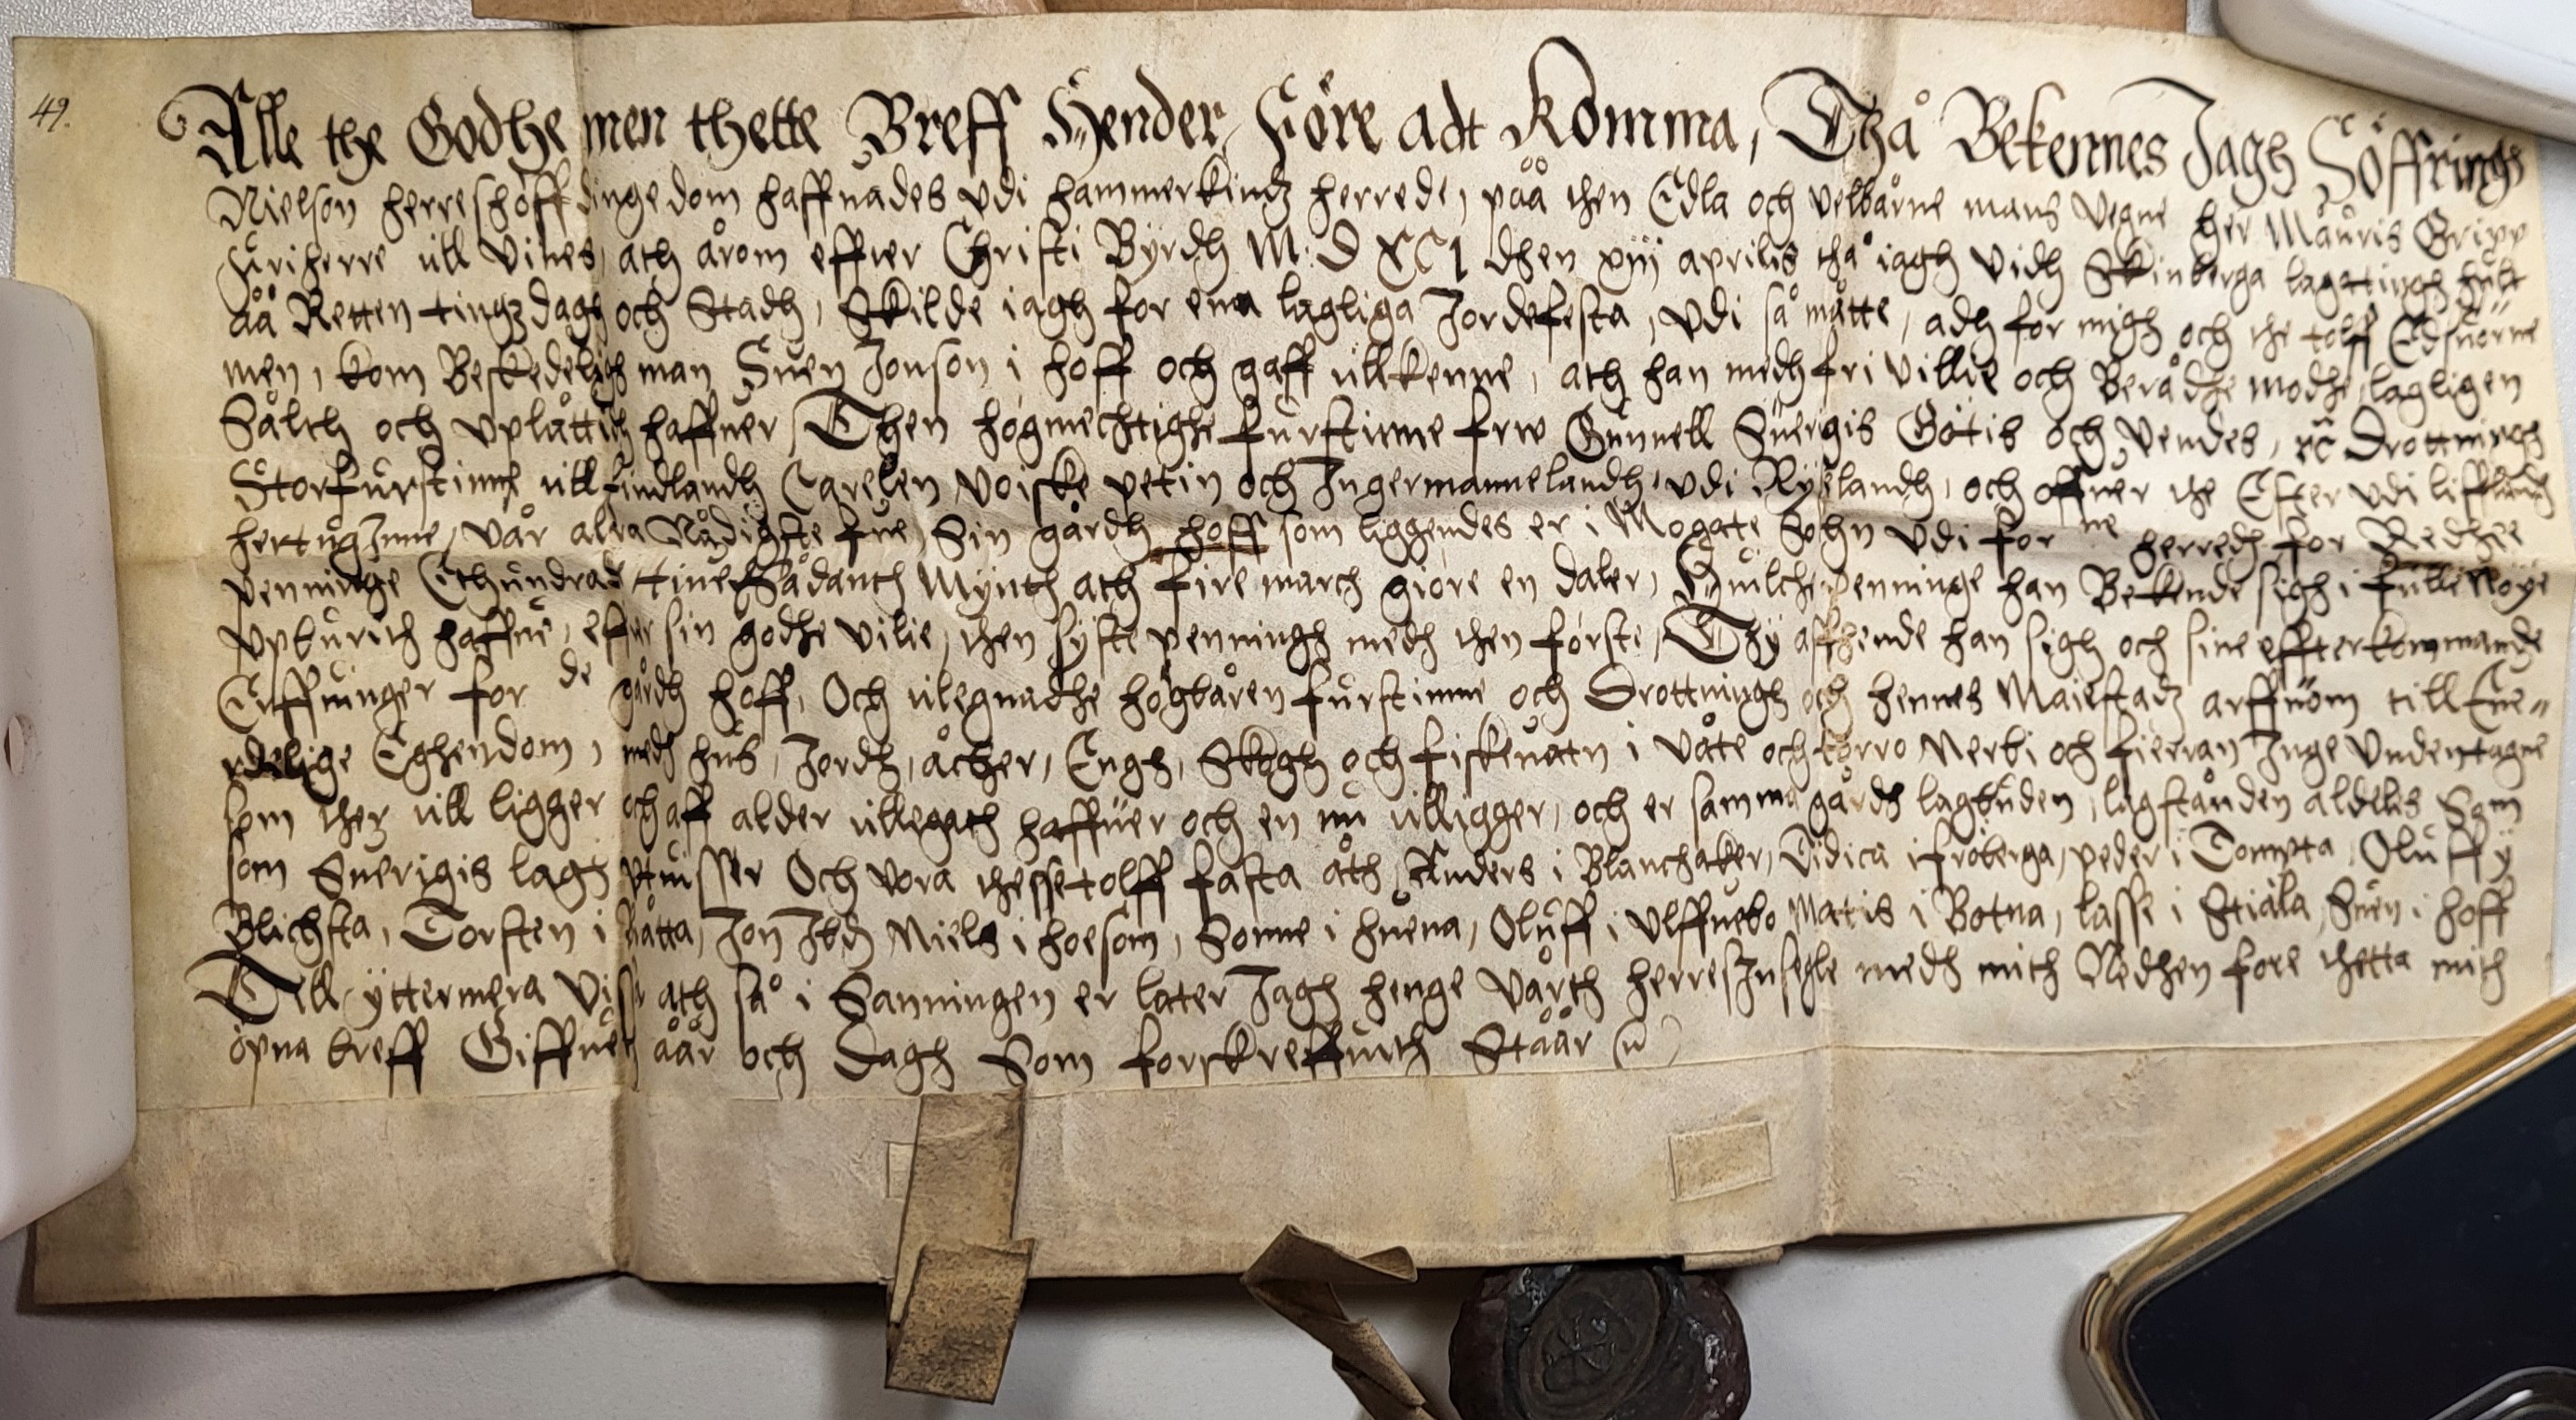 49.
Alle the Godhe men thette Breff Hender Före adt Komma, Thå Bekennes Jagh Söffringh
Nielson herreshöffdinge dom haffuades vdi hammerkindz herrede, påå then Edla och velbårne mans vegne her Mauris Gripp
Friherre till Vines, ath årom effter Christi Byrdh M: D XCI dhen xiij aprilis thå iagh vidh Skinberga lagattingh hult
åå Retten tingzdagh och Stadh, Skilde iagh for ena lagliga Jordefesta, vdi så måtte, adh for migh och the tolff Edsuorne
men, kom Beskedeligh man Suen Jonson i hoff och gaff tillkenne, ath han medh fri villie och Berådhe modhe, lagligen
Sålth och vplåttith haffuer Then högmechtighe furstinne frw Gunnell Suerigis Götis och Vendes, etc Drottningh
Storfurstinne till findlandh Carelen Voiske petin och Ingermannelandh, vdi Rydzlandh, och offuer the Ester vdi liffland
hertuginne, vår alra Nådigste frue, Sin gårdh hoff som liggendes er i Mogate Sohn vdi for ne herredh for Redhee
penninge Ethundrad tiue Sådanth Mynth ath fire march giöre en daler, Huilche penninge han Bekende sigh i fulle Nöye
vpburith haffue, effter sin godhe vilie, then syste penningh medh then förste, Thy affhende han sigh och sine effterkommande
Erffuinger for de gårdh hoff, Och tilegnadhe högbåren furstinne och Drottningh och hennes Maiestadz arffuom till Eue„
rdelige Eghendom, medh hus, Jordh, åcher, Engh, Skogh och fiskeuatn i våte och torro Nerbi och fierran Inge Vndentagne
som ther till ligger och aff alder tillegath haffuer och en nu tilligger, och er samma gårdh lagbuden, lagstånden aldeles Som
som Suerigis lagh vtuisser Och vora thesse tolff fasta åth Anders i Blanchaker, Didich i fröberga, peder i Tompta Oluff y
Blichsta, Torsten i Råtta, Jon Ibd Niels i hoesom, Sonne i huena, Oluff i Vlffuebo Matis i Botna, lasse i Stiäla, Suen i hoff
Till yttermera Visse ath så i Sanningen er later Jagh henge Vårth herres Insegle medh mith Nedhen fore thetta mith
öpna breff Giffueth åår och Dagh Som forskreffuith Ståår